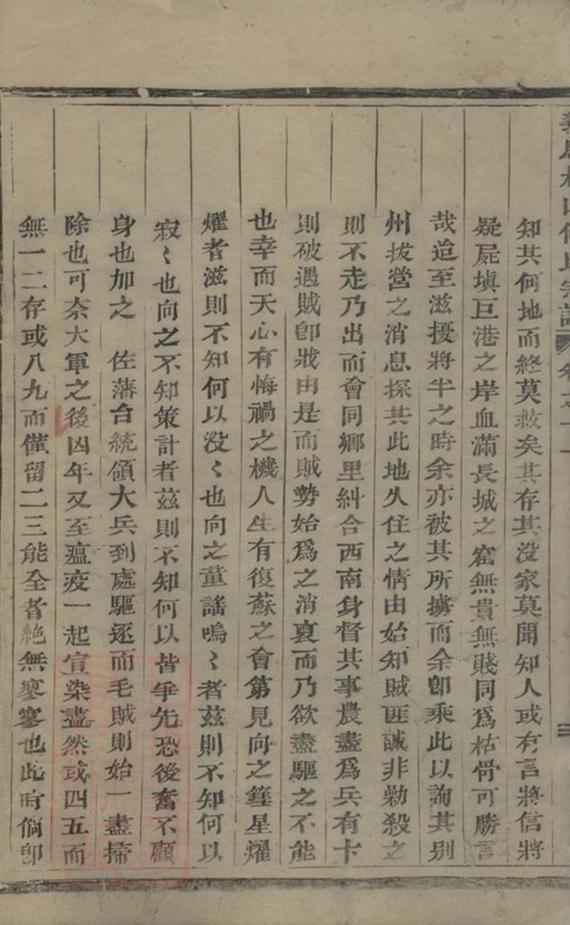 知其何地而終莫救矣其存其沒家莫聞知人或有言將信將
疑屍塡巨港之岸血滿長城之窟無貴無賤同爲枯骨可勝言
哉迨至滋擾將半之時余亦被其所擄而余卽乘此以詢其別
州拔營之消息探其此地久住之情由始知賊匪誠非勦殺之
則不走乃出而會同鄉里糾合西南身督其事農盡爲兵有卡
則破遇賊卽戕由是而賊勢始爲之消衰而乃欲盡驅之不能
也幸而天心有悔禍之機人生有復蘇之會第見向之篲星燿
燿者滋則不知何以沒〻也向之童謠鳴〻者茲則不知何以
寂〻也向之不知策計者茲則不知何以皆爭先恐後奮不顧
身也加之 佐藩台統領大兵到處驅逐而毛賊則始一盡掃
除也可奈大軍之後凶年又至瘟疫一起宣染盡然或四五而
無一二存或八九而僅留二三能全者絶無寥寥也此時倘卽